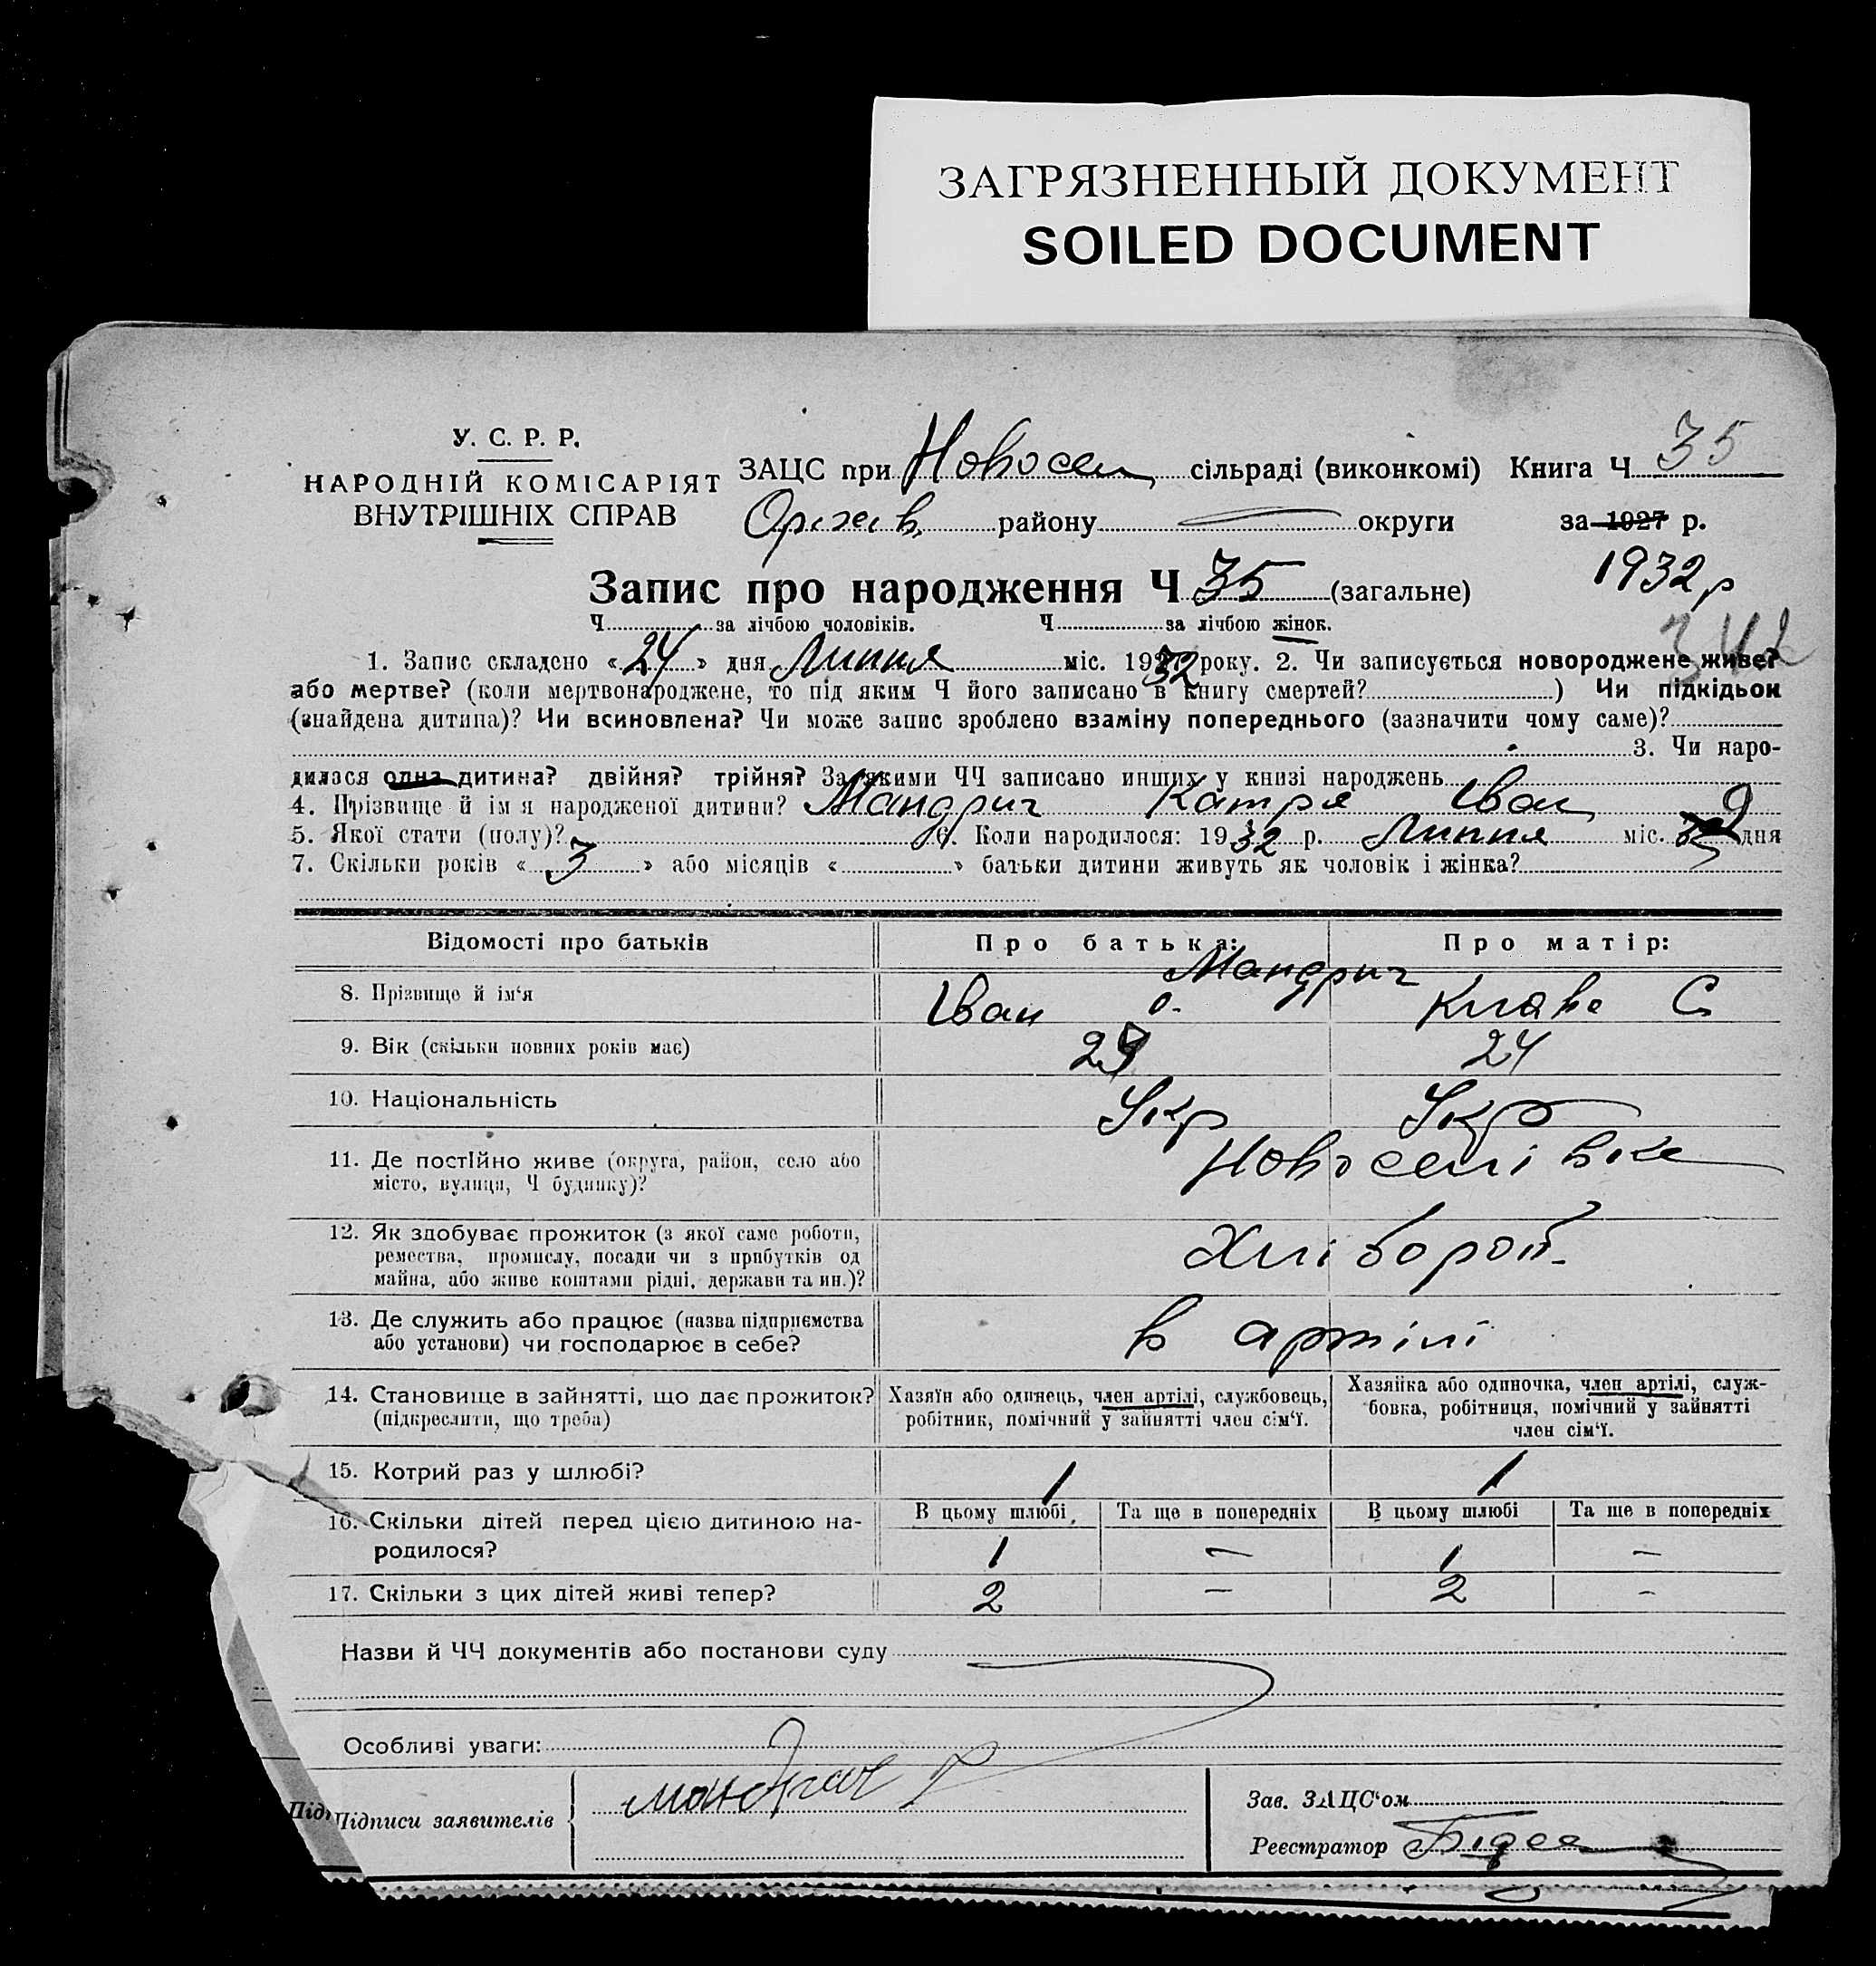 ЗАГРЯЗНЕННЫЙ ДОКУМЕНТ
SOILED DOCUMENT
У. С. Р. Р.
НАРОДНІЙ КОМІСАРІЯТ
ВНУТРІШНІХ СПРАВ
ЗАЦС при Новосел сільраді (виконкомі) Книга Ч 35
Оржів району округи за 1927 р.
1932 р
Запис про народження Ч 35 (загальне)
Ч за лічбою чоловіків. Ч за лічбою жінок.
342
1. Запис складено «24» дня Липня міс. 1932 року. 2. Чи записується новороджене живе?
або мертве? (коли мертвонароджене, то під яким Ч його записано в книгу смертей? ) Чи підкідьок
(знайдена дитина)? Чи всиновлена? Чи може запис зроблено взаміну попереднього (зазначити чому саме)?
3. Чи наро-
дилася одна дитина? двійня? трійня? За якими ЧЧ записано инших у книзі народжень
4. Прізвище й ім я народженої дитини? Мандрич Катря Іван
5. Якої стати (полу)? 6. Коли народилося: 1932 р. Липня міс. 9 дня
7. Скільки років «3» або місяців « » батьки дитини живуть як чоловік і жінка?
Відомості про батьків Про батька: Про матір:
Мандрич
8. Прізвище й ім‘я Іван О. Клава С
9. Вік (скільки повних років має) 24
10. Національність Укр Укр
11. Де постІйно живе (округа, район, село або
місто, вулиця, Ч будинку)? Новоселівка
12. Як здобуває прожиток (з якої саме роботи,
ремества, промислу, посади чи з прибутків од
майна, або живе коштами рідні, держави та ин.)? Хлібороб
13. Де служить або працює (назва підприємства
або установи) чи господарює в себе? в артілі
14. Становище в зайнятті, що дає прожиток?
(підкреслити, що треба)
Хазяїн або одинець, член артілі, службовець,
робітник, помічний у зайнятті член сім‘ї.
Хазяйка або одиночка, член артілі, служ-
бовка, робітниця, помічний у зайнятті
член сім‘ї.
15. Котрий раз у шлюбі? 1 1
В цьому шлюбі Та ще в попередніх В цьому шлюбі Та ще в попередніх
16. Скільки дітей перед цією дитиною на-
родилося? 1 — 1 —
17. Скільки з цих дітей живі тепер? 2 — 2 -
Назви й ЧЧ документів або постанови суду
Особливі уваги:
Підписи заявителів Мандрич
Зав. ЗАЦС‘ом
Реєстратор